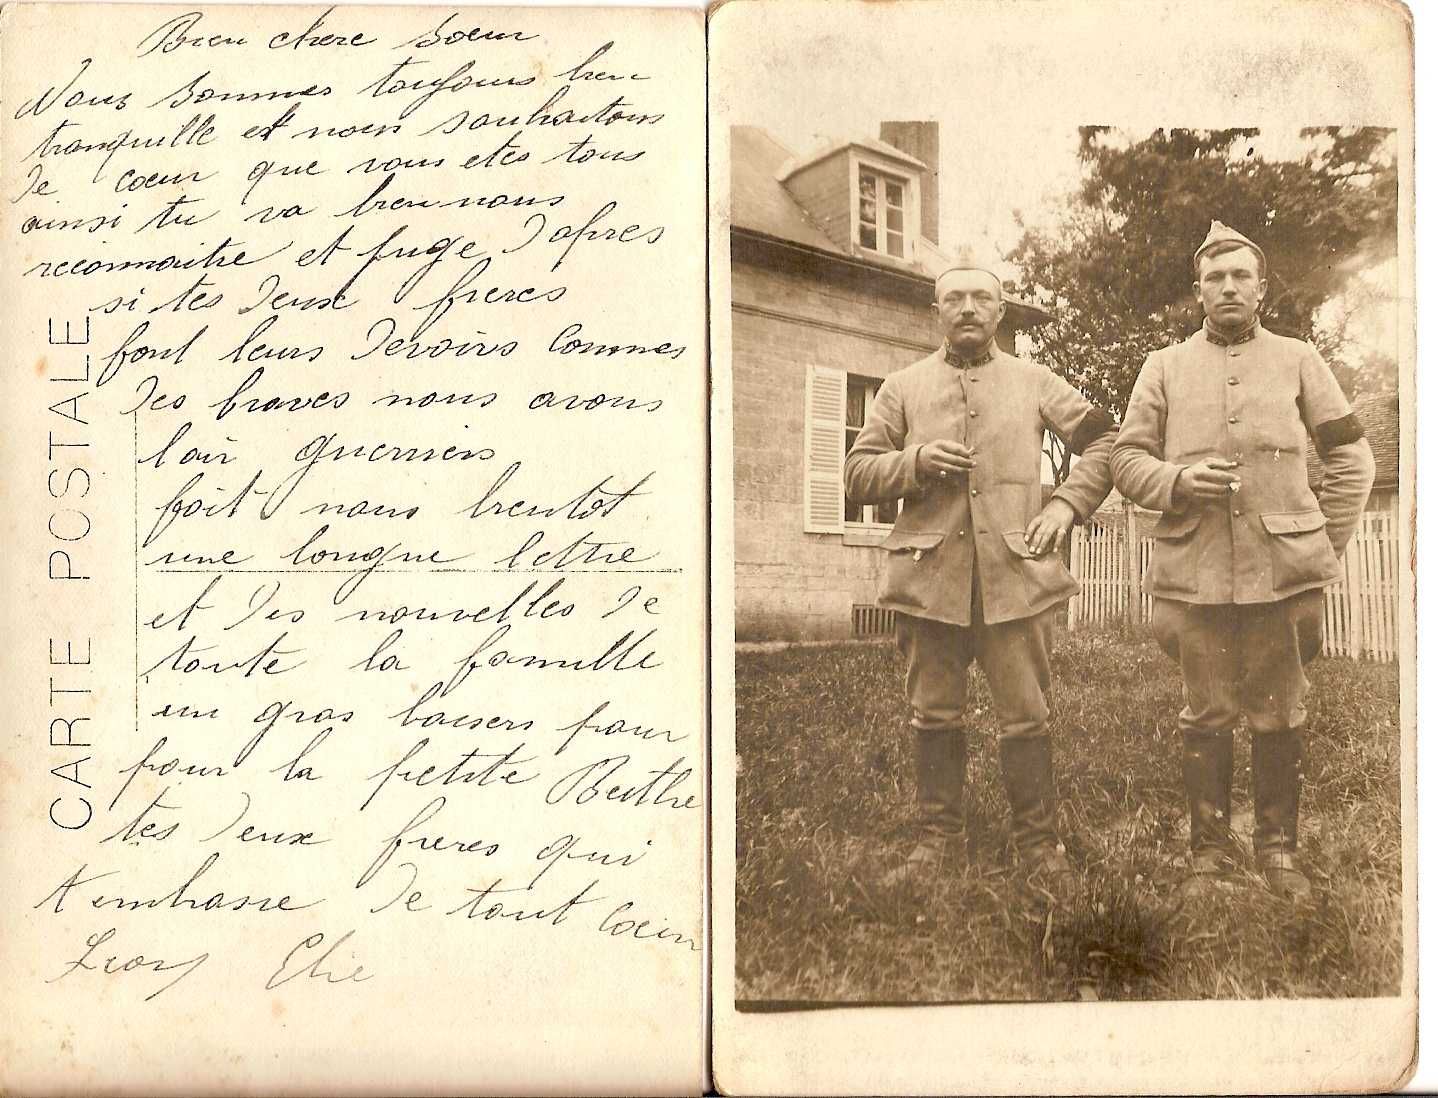 Bien chere Soeur
Nous Sommes toujours bien
tranquille et nous souhaitons
de coeur que vous etes tous
ainsi tu va bien nous
reconnaitre et juge d'apres
si tes deux freres
font leurs devoirs Commes
des braves nous avons
lair guerriers
fait nous bientôt
une longue lettre
et des nouvelles de
toute la famille
un gros baisers pour
pour la petite Berthe
tes deux freres qui
t'embrasse de tout Coeur
Elie
CARTE POSTALE